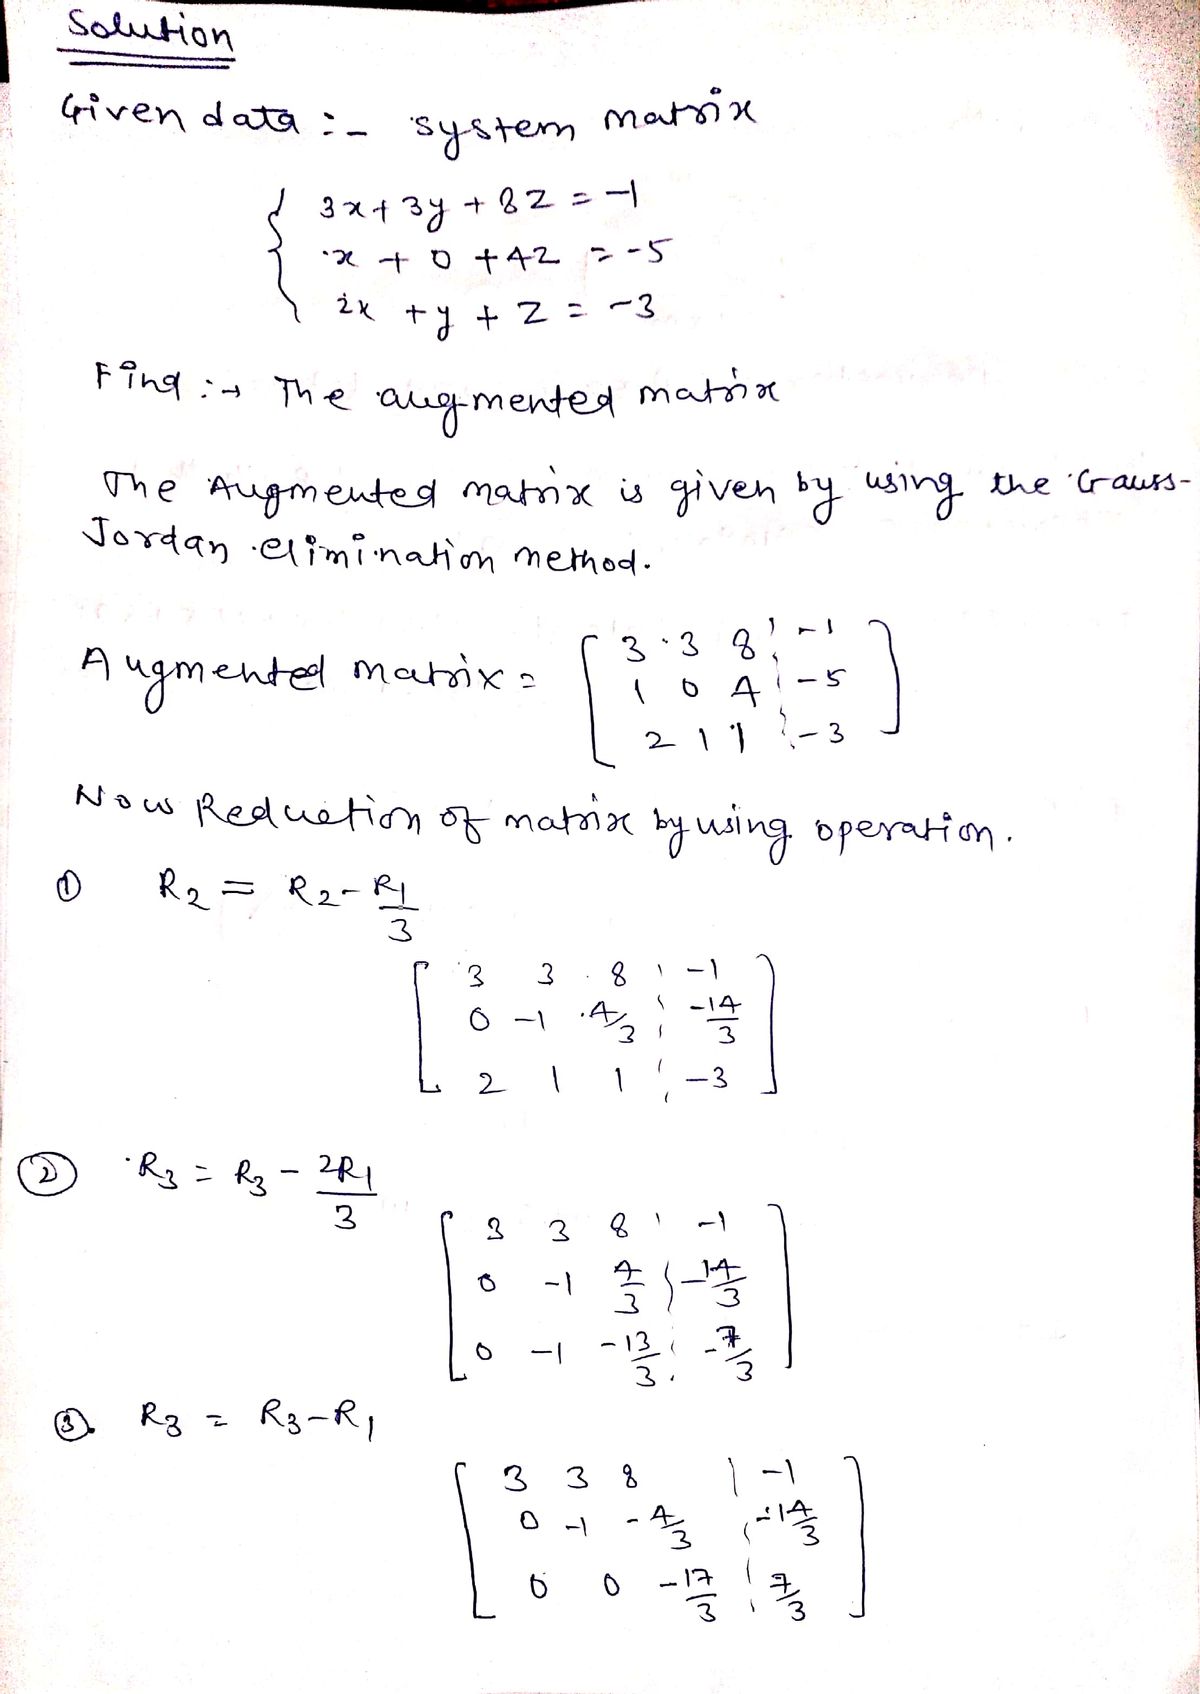 Solution
Given data :- system matrix
3x + 3y + 8z = -1
x + 0 + 4z = -5
2x + y + z = -3
Find :→ The augmented matrix
The Augmented matrix is given by using the Gauss-
Jordan elimination method.
Augmented matrix = [ 3 3 8 ¦ -1
1 0 4 ¦ -5
2 1 1 ¦ -3 ]
Now Reduction of matrix by using operation.
① R2 = R2 - R1/3
[ 3 3 8 ¦ -1
0 -1 4/3 ¦ -14/3
2 1 1 ¦ -3 ]
② R3 = R3 - 2R1/3
[ 3 3 8 ¦ -1
0 -1 4/3 ¦ -14/3
0 -1 -13/3 ¦ -7/3 ]
③. R3 = R3 - R1
[ 3 3 8 ¦ -1
0 -1 -4/3 ¦ -14/3
0 0 -17/3 ¦ 7/3 ]